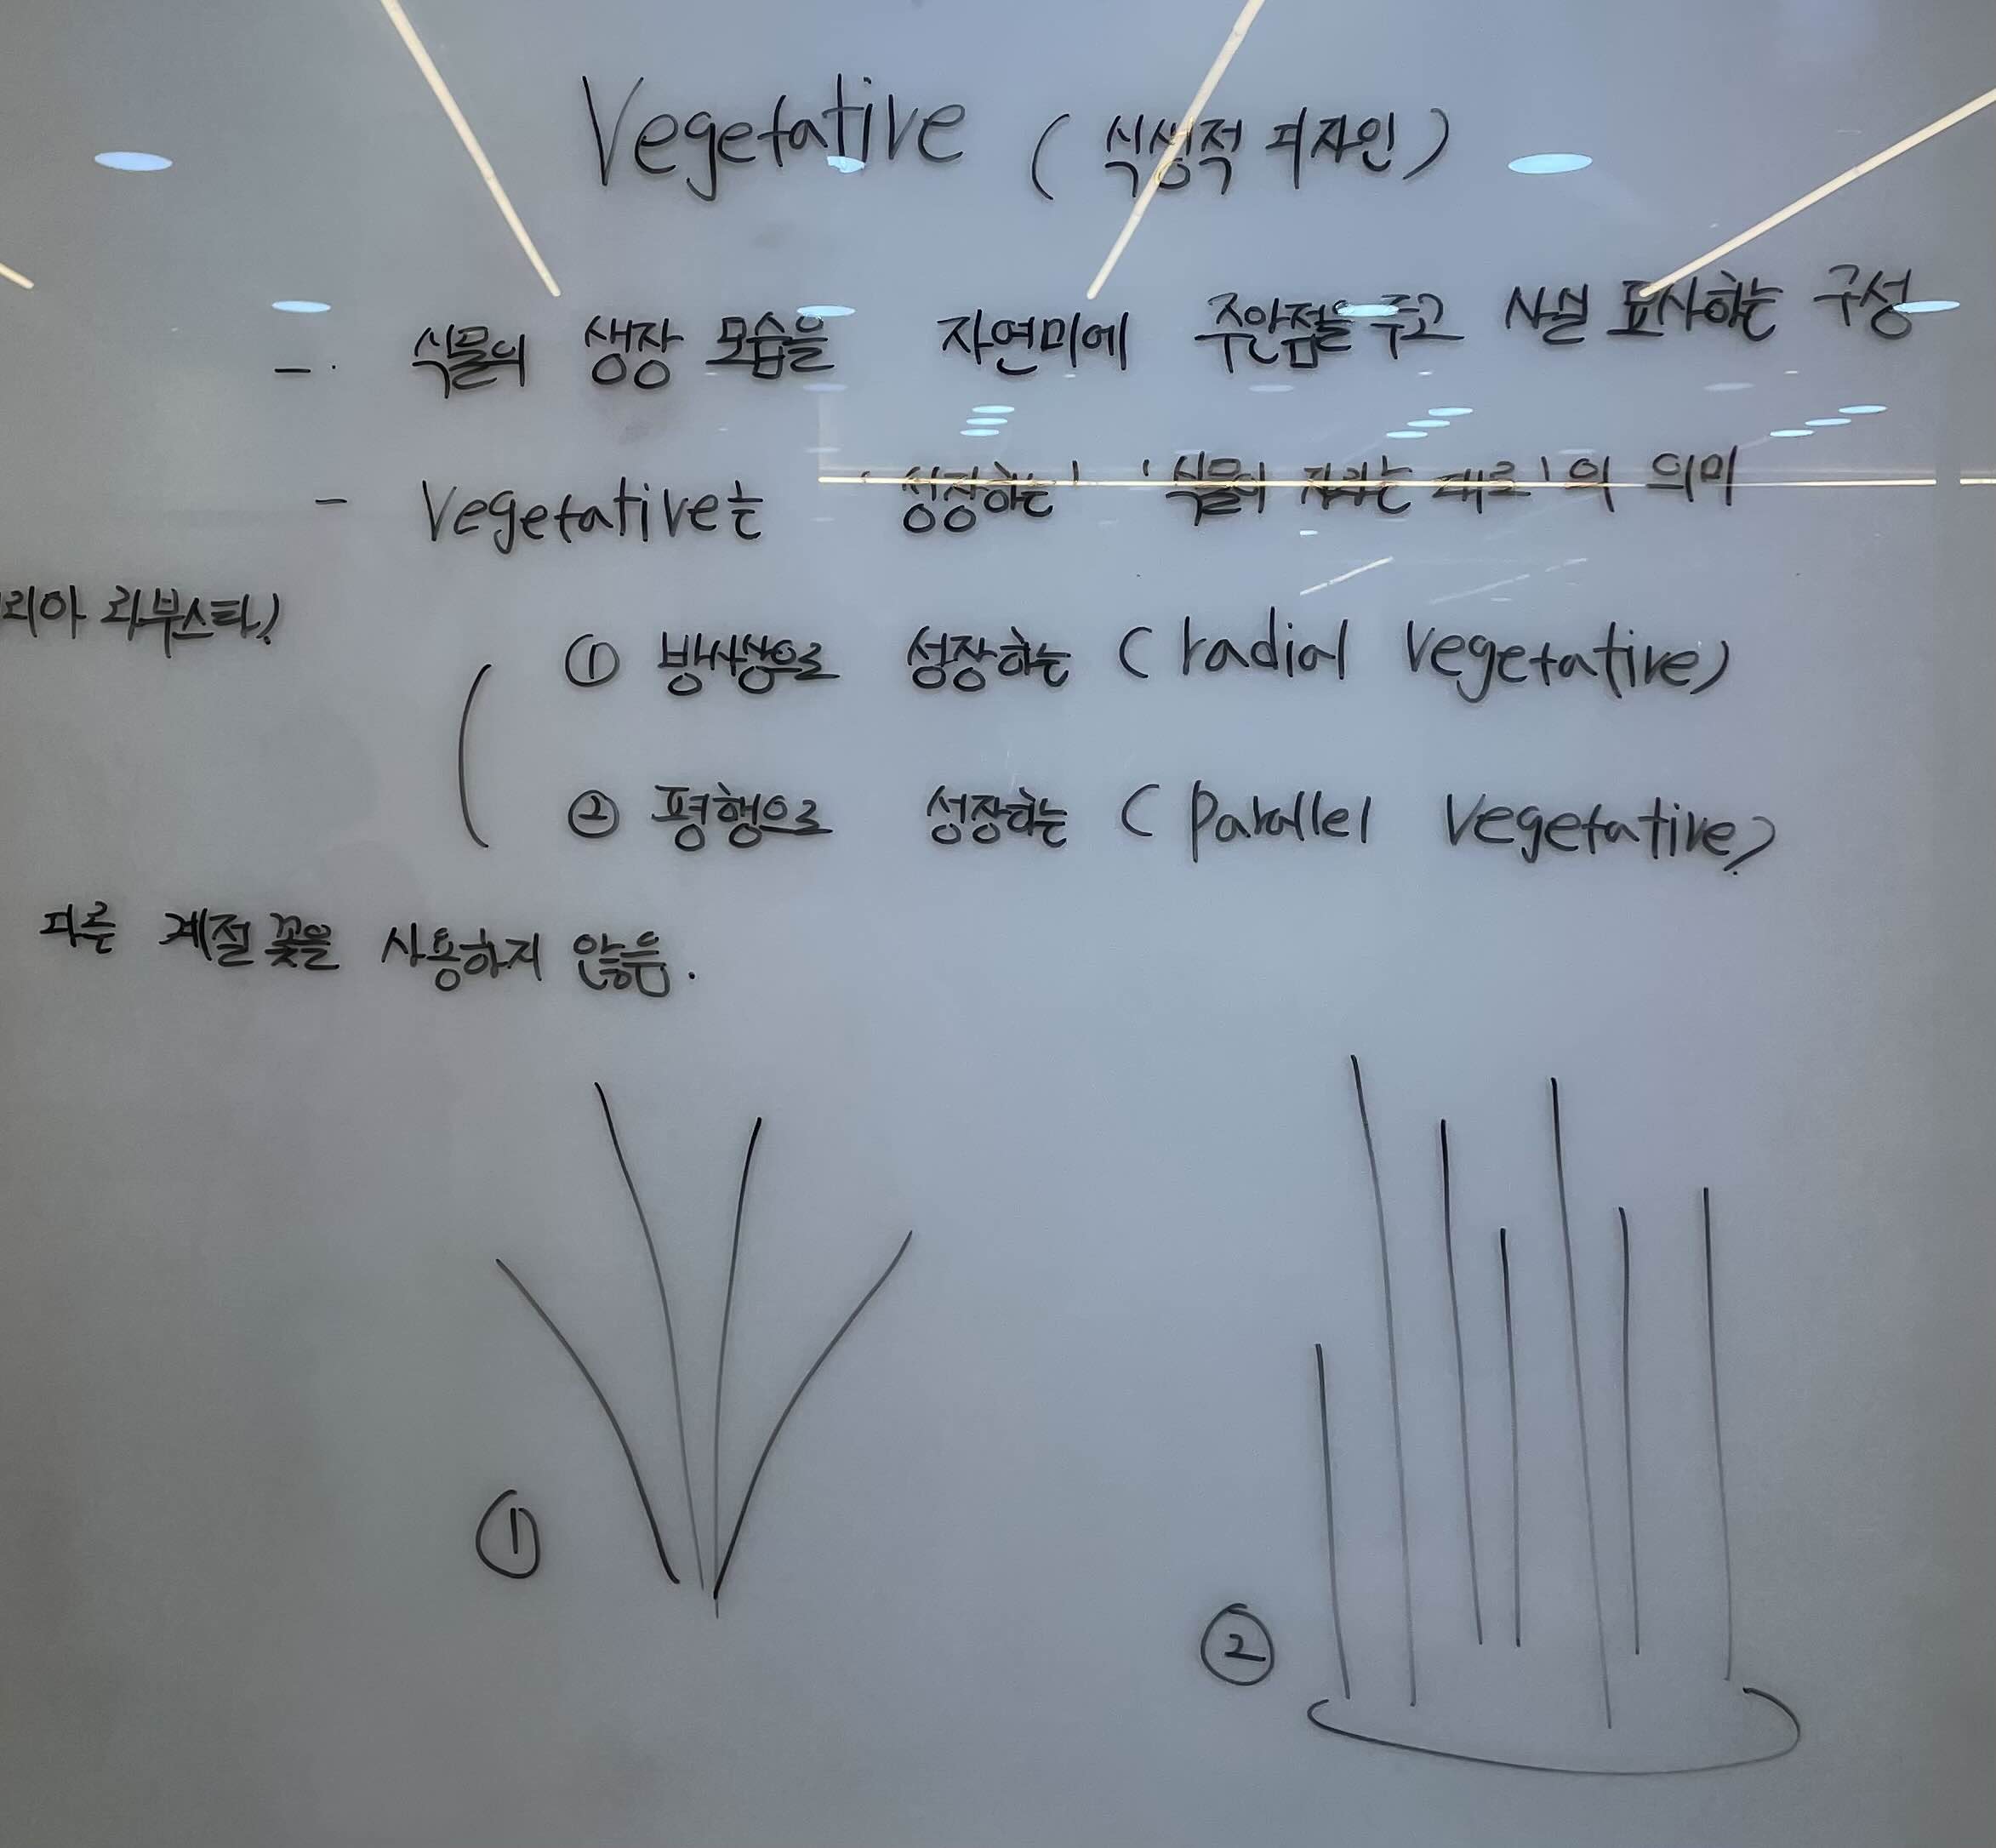 Vegetative (식생적 디자인)
- 식물의 생장 모습을 자연미에 주안점을 두고 사실 묘사하는 구성
- Vegetative는 '성장하는' '식물이 자라는 대로'의 의미
리아 라부스타)
① 방사상으로 성장하는 (radial vegetative)
② 평행으로 성장하는 (Parallel Vegetative)
다른 계절 꽃을 사용하지 않음.
①
②